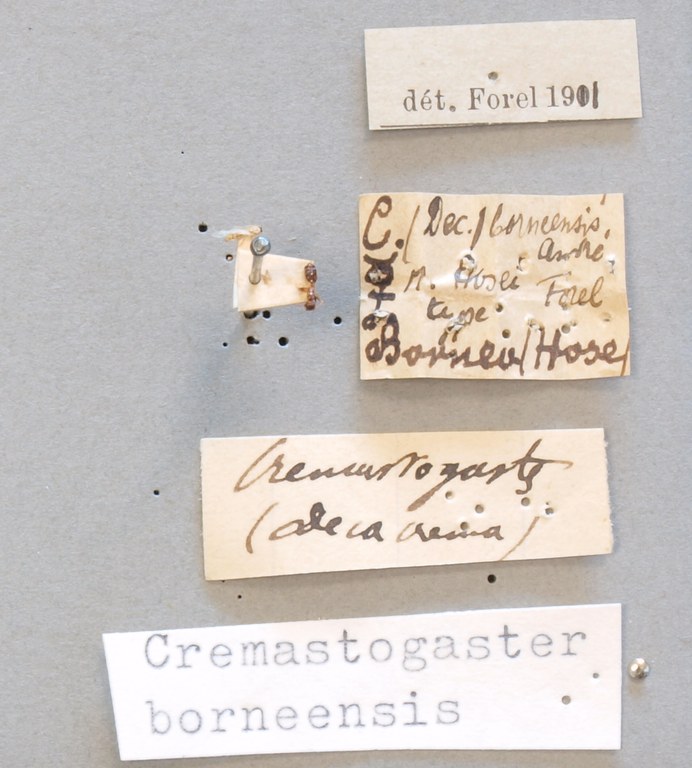 dét. Forel 1901
C. (Dec.) borneensis,
André
r. Hosei Forel
type
Borneo (Hose)
Cremastogaster
(Decacrema)
Cremastogaster
borneensis